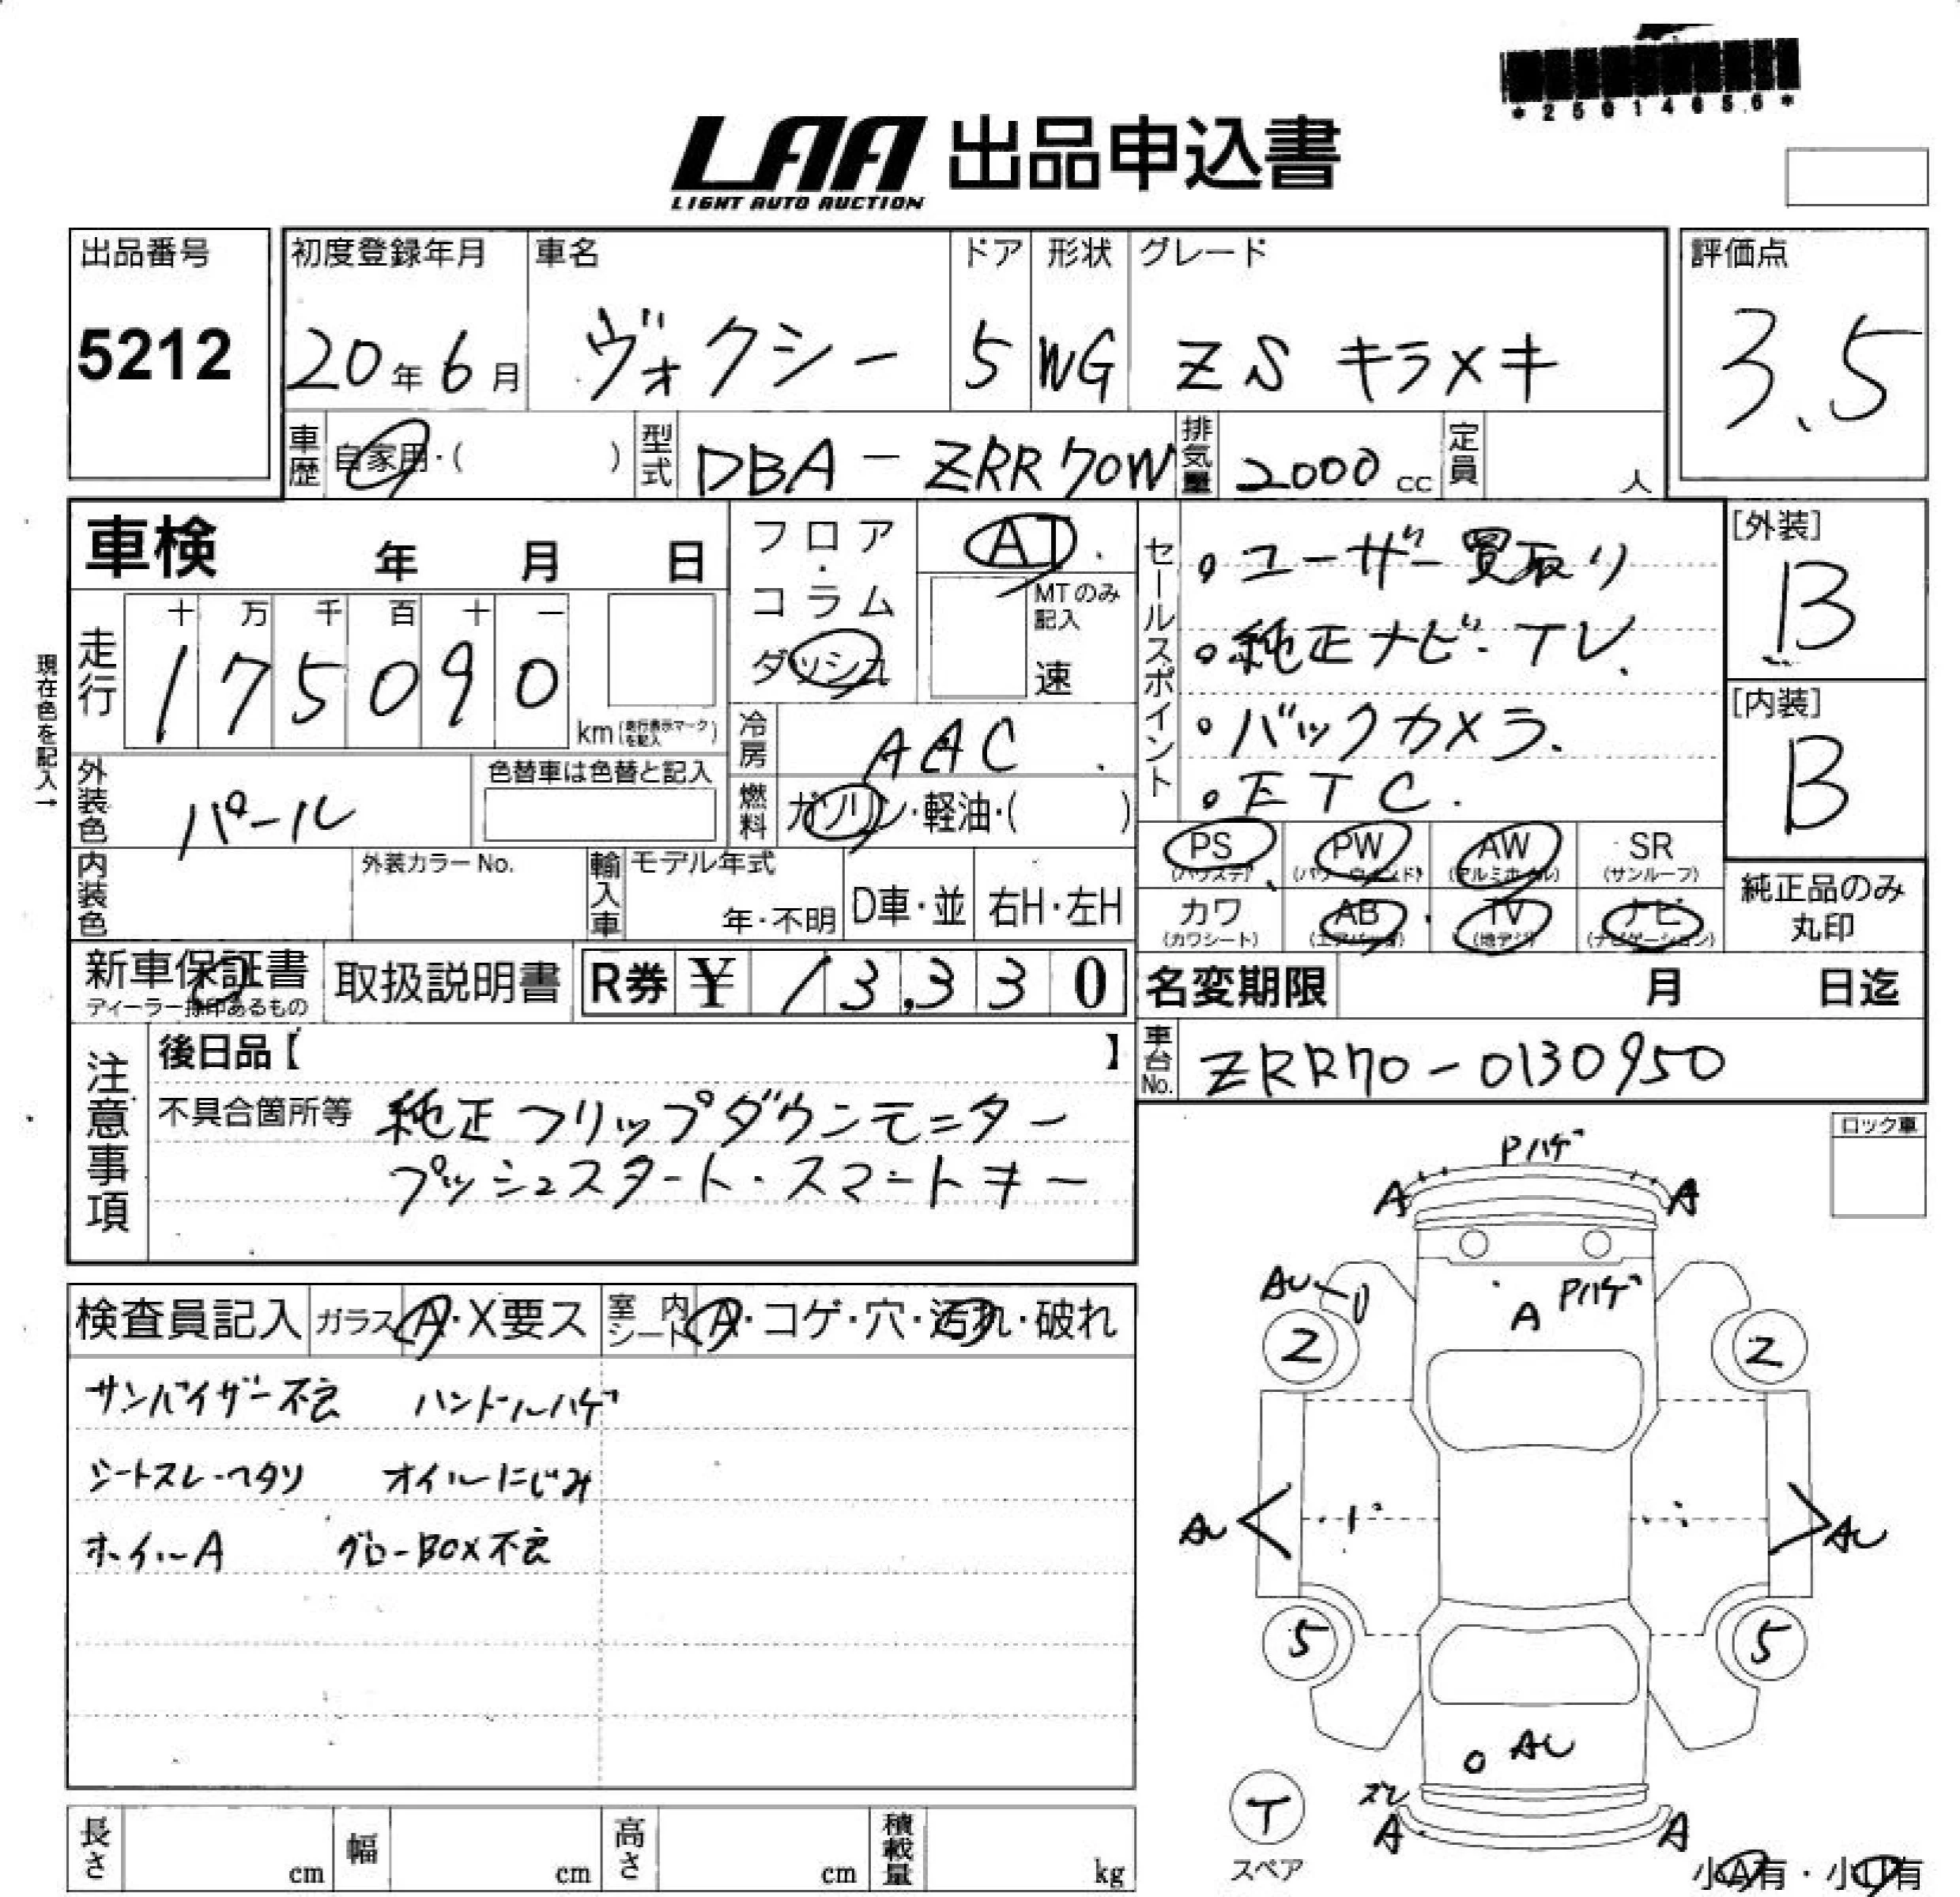 *25014656*
LAA 出品申込書
LIGHT AUTO AUCTION
出品番号 初度登録年月 車名 ドア 形状 グレード 評価点
5212 20年6月 ヴォクシー 5 WG ZS キラメキ 3.5
車歴 自家用・( ) 型式 DBA-ZRR70W 排気量 2000cc 定員 人
車検 年 月 日
フロア・コラム ダッシュ
AT
MTのみ記入
速
現在色を記入→
走行 十 万 千 百 十 一
175090
km (走行表示マークを記入)
冷房 AAC
燃料 ガソリン・軽油・( )
外装色 パール
色替車は色替と記入
内装色
外装カラーNo.
輸入車 モデル年式
年・不明 D車・並 右H・左H
セールスポイント
。ユーザー買取り
。純正ナビ・TV.
。バックカメラ.
。ETC.
[外装]
B
[内装]
B
PS PW AW SR
(パワステ) (パワーウィンド) (アルミホイル) (サンルーフ)
カワ AB TV ナビ
(カワシート) (エアバッグ) (地デジ) (ナビゲーション)
純正品のみ
丸印
新車保証書
ディーラー捺印あるもの
取扱説明書
R券 ¥ 13,330
名変期限 月 日迄
車台No. ZRR70-0130950
注意事項
後日品【 】
不具合箇所等 純正フリップダウンモニター
プッシュスタート・スマートキー
ロック車
Pハゲ
A A
AU A Pハゲ
2 2
AU AU
5 5
AU
ズレ
A A
T
スペア
小A有・小U有
検査員記入 ガラス A・X要ス 室内シート A・コゲ・穴・汚れ・破れ
サンバイザー不良 ハンドルハゲ
シートスレ・ヘタリ オイルにじみ
ホイールA グローBOX不良
長さ cm 幅 cm 高さ cm 積載量 kg